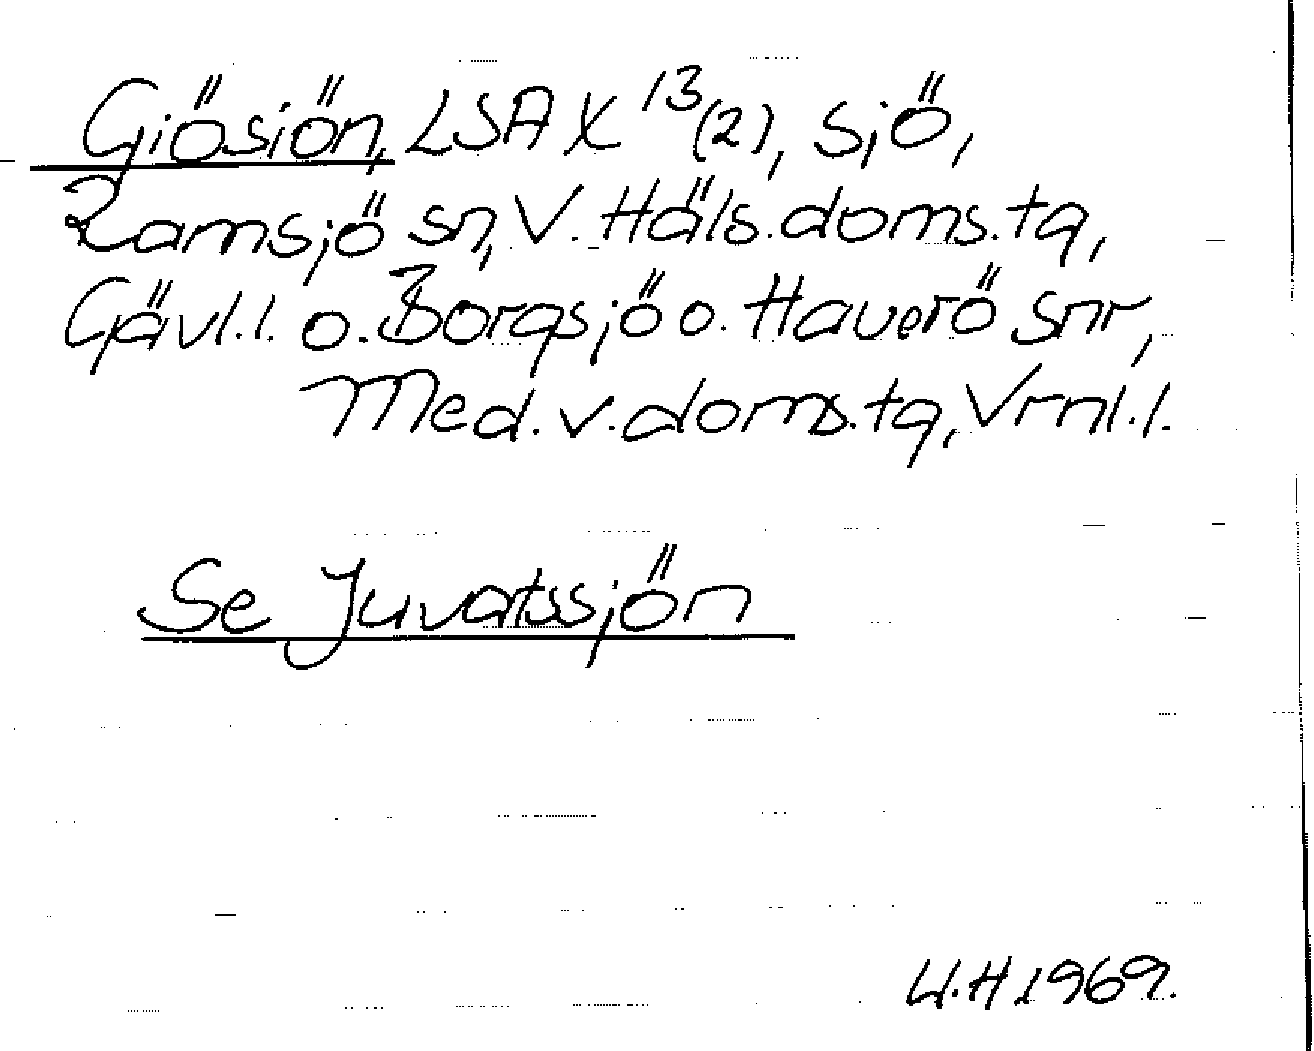 Giösiön, LSA X 13(2), sjö,
Ramsjö sn, V. Häls. doms. tg,
Gävl. l. o. Borgsjö o. Haverö snr,
Med. v. doms. tg, Vrnl. l.
Se Juvatssjön
U.H 1969.